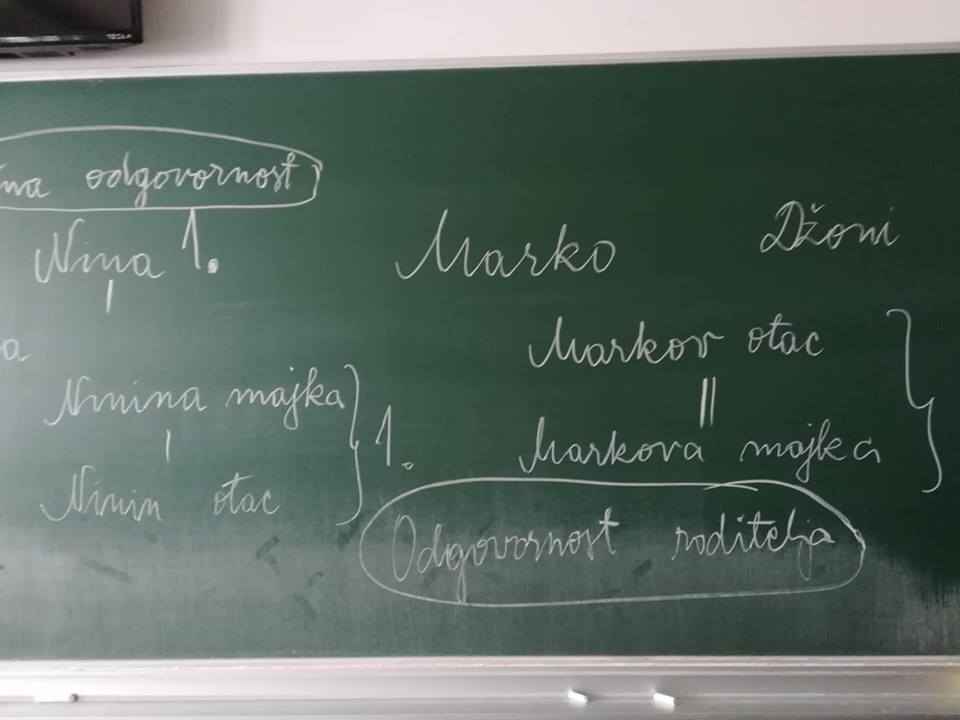 TESLA
na odgovornost
Nina 1.
Marko
Džoni
a
Ninina majka
Ninin otac
1.
Markov otac
Markova majka
Odgovornost roditelja